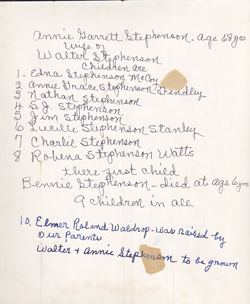 Annie Garrett Stephenson. Age 68 yrs
Wife of
Walter Stephenson
Children are
1. Edna Stephenson McCoy
2 Annie Grace Stephenson
3 Nathan Stephenson
4 S.J. Stephenson
5 Jim Stephenson
6 Lucille Stephenson Stanley
7 Charlie Stephenson
8 Robena Stephenson Watts
there first child
Bennie Stephenson - died at age 6
9 children in all
10. Elmer Roland Waldrop - was raised by
Our Parents
Walter + Annie Stephenson to be grown